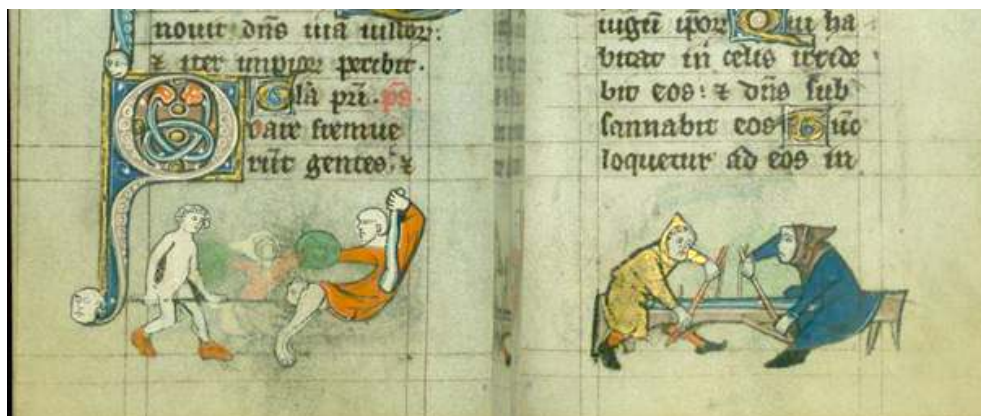 nouit dn̄s uia iustor:
⁊ iter impior peribit.
Gl̄a pr̄i. p̄s
Quare fremue
rūt gentes: ⁊
iugū ipor Qui ha
bitat in celis irride
bit eos: ⁊ dn̄s sub
sannabit eos Tūc
loquetur ad eos in